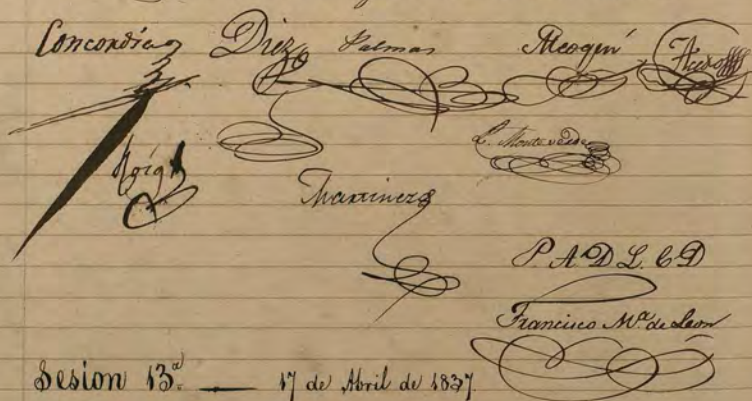 Concordia Diez Palmas Meogui Acedo
Roig L. Monteverde
Martinez
P. A. D. L. C D
Francisco Mª de Leon
Sesion 13ª — 17 de Abril de 1837.